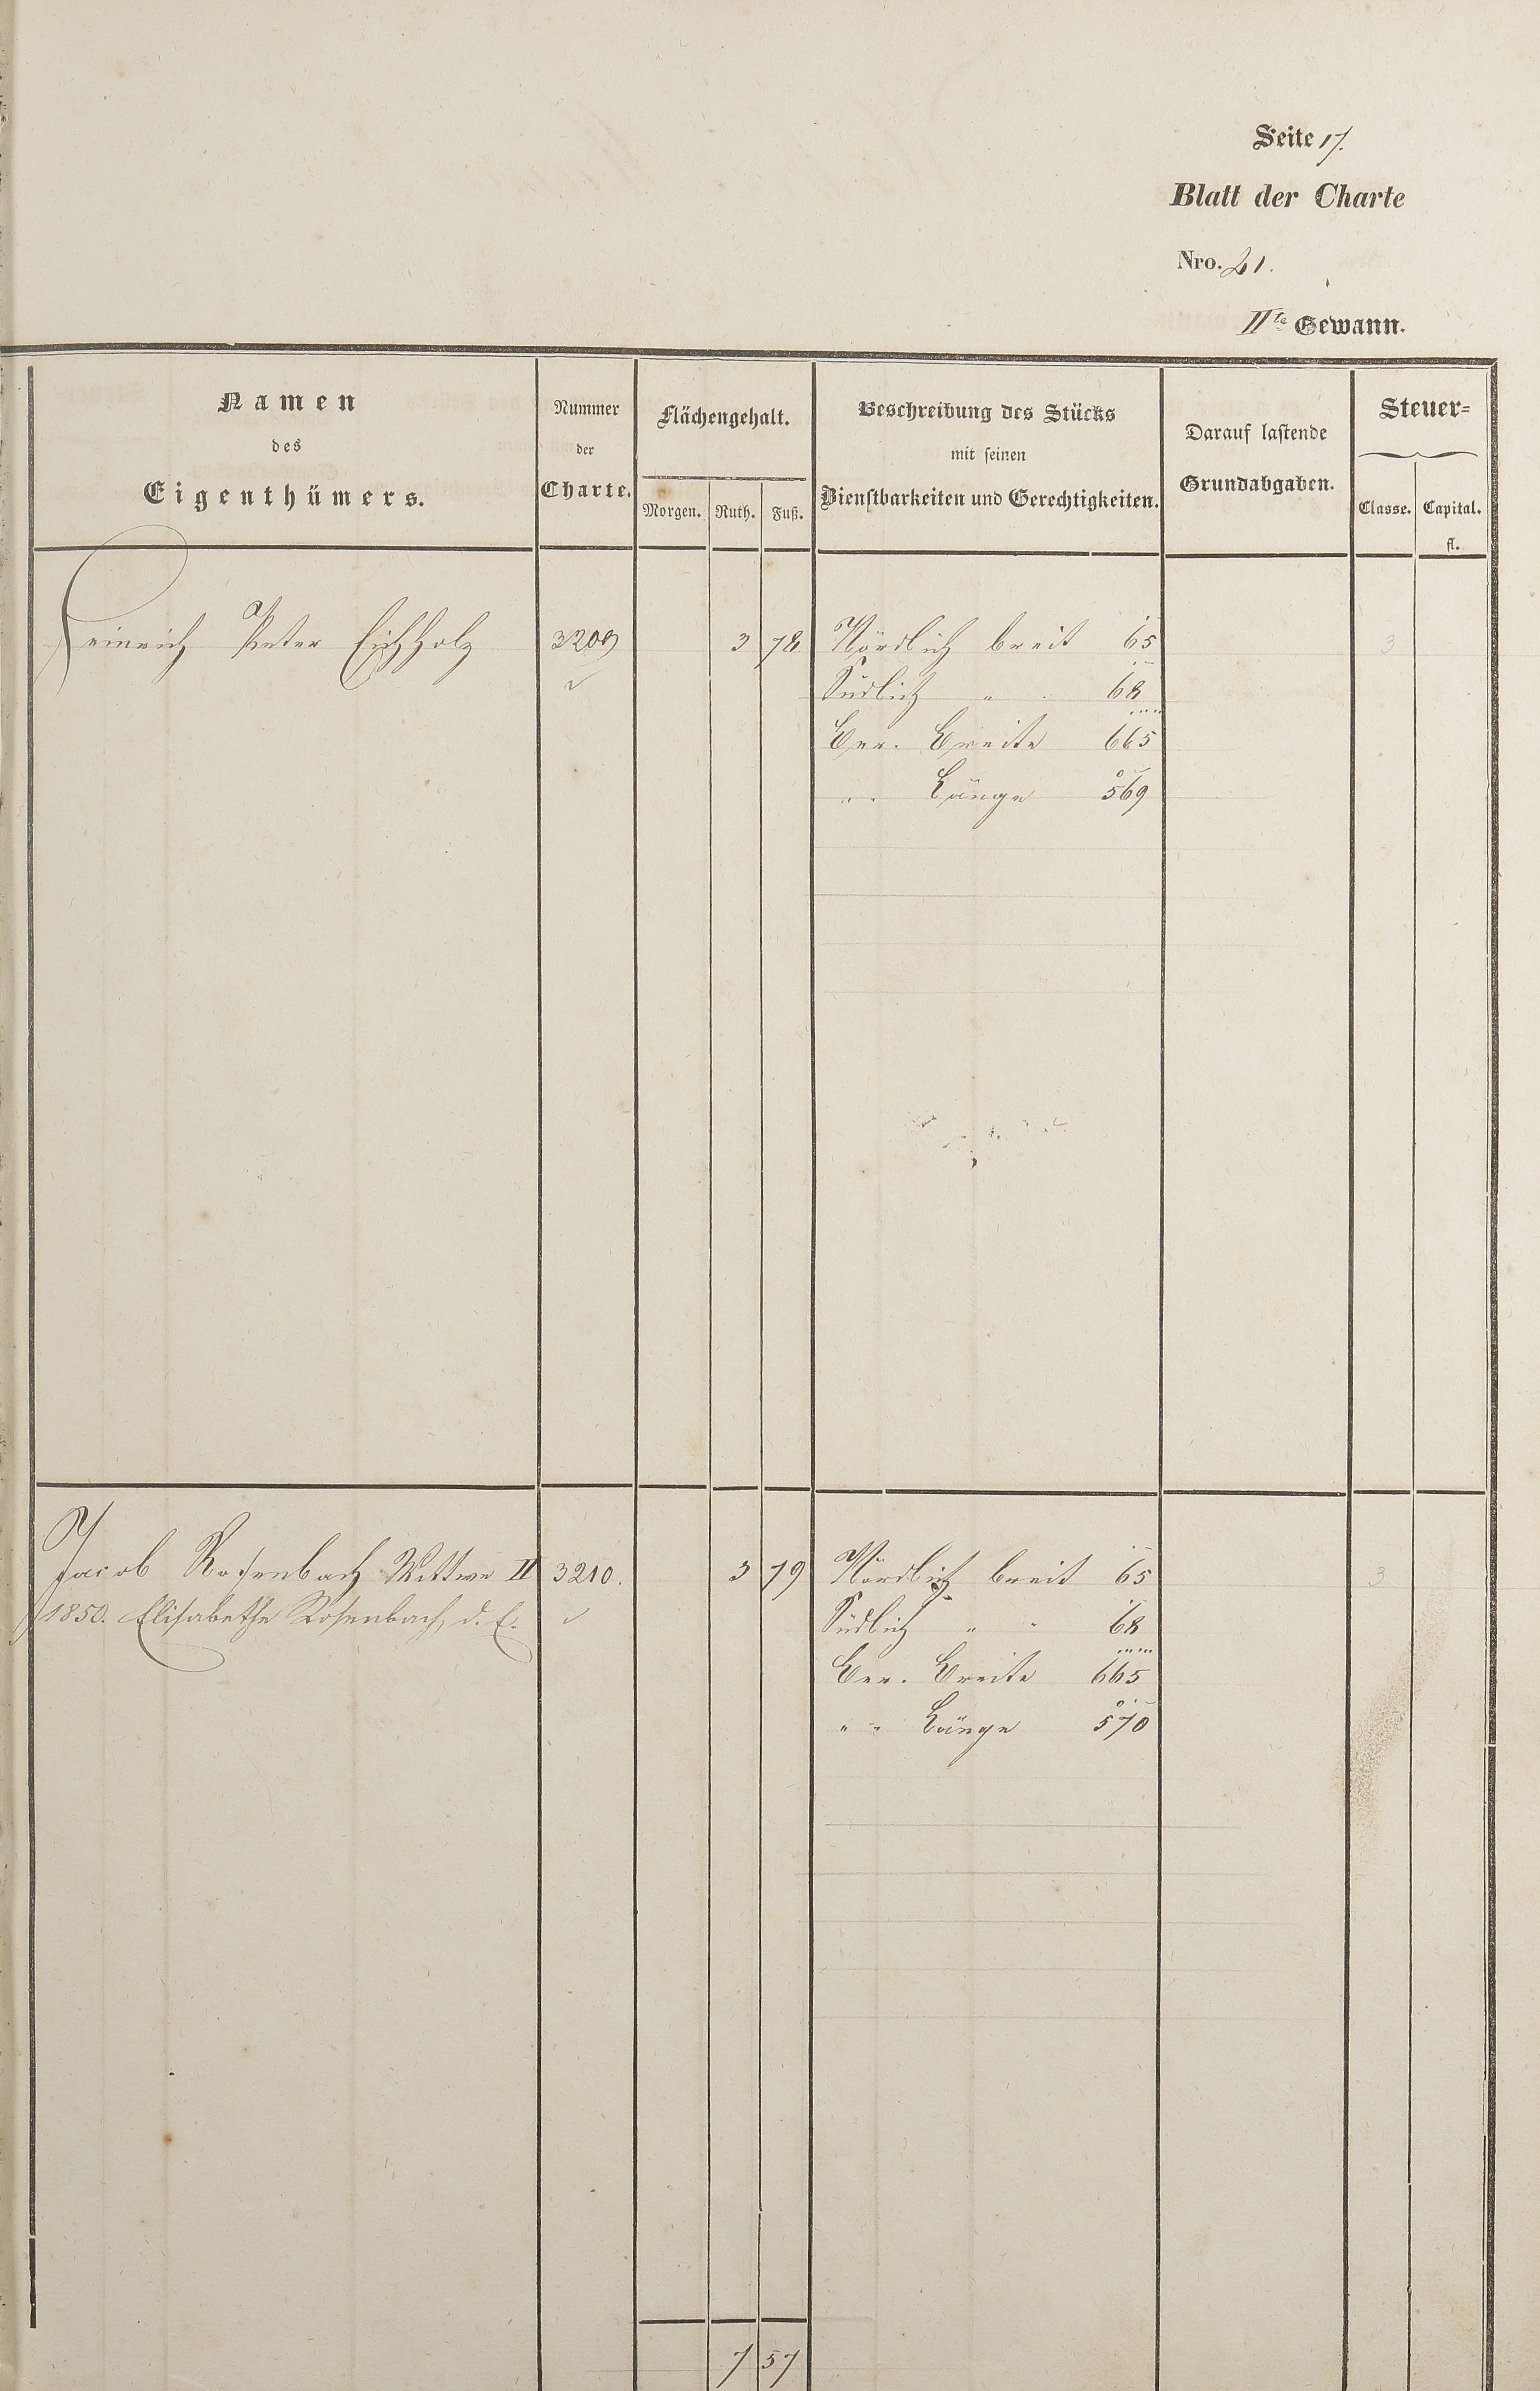 Seite 17.
Blatt der Charte
Nro. 21.
IIte Gewann.
Namen
des
Eigenthümers.
Nummer
der
Charte.
Flächengehalt.
Morgen. Ruth. Fuß.
Beschreibung des Stücks
mit seinen
Dienstbarkeiten und Gerechtigkeiten.
Darauf lastende
Grundabgaben.
Steuer=
Classe. Capital.
fl.
Heinrich Peter Eichholz 3209 3 78 Nördlich breit 65 3
Südlich " 68
Ber. Breite 665
" Länge 569
Jacob Rosenbach Wittwe II 3210. 3 79 Nördlich breit 65 3
1850. Elisabethe Rosenbach, d. E. Südlich " " 68
Ber. Breite 665
" " Länge 570
7 57